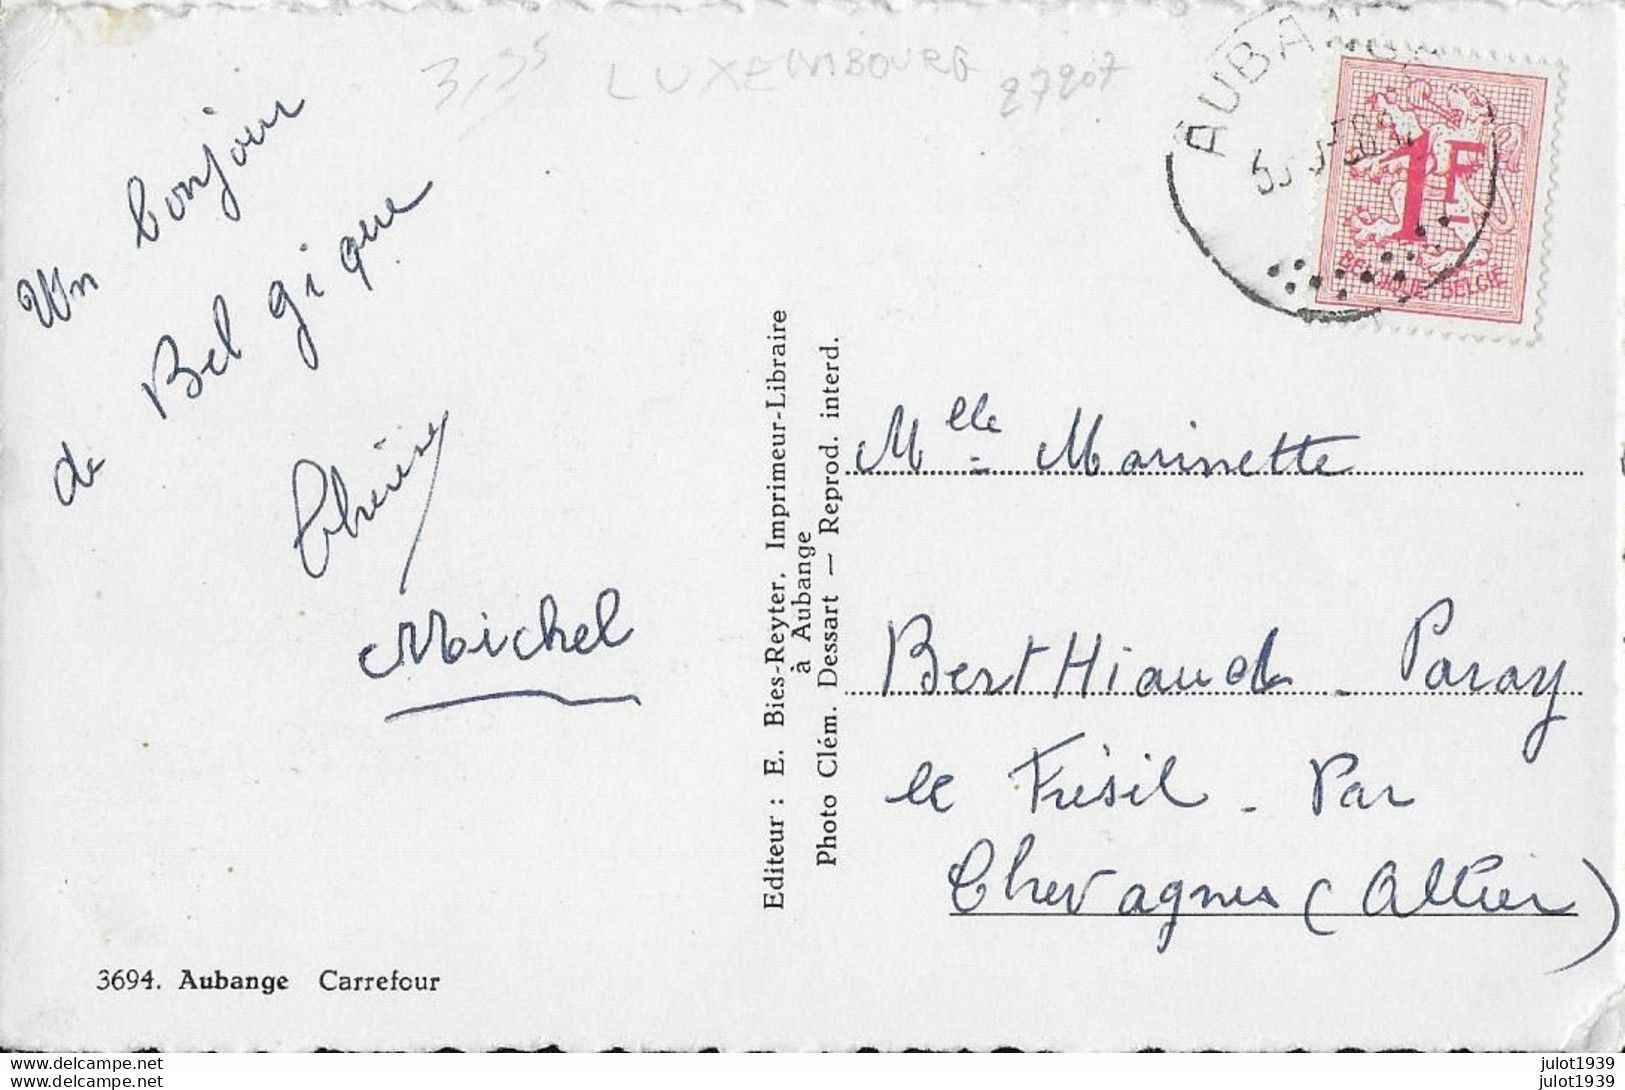 3,35 LUXEMBOURG 27207
AUBANGE
1F
BELGIQUE-BELGIË
Un bonjour
de Belgique
Thérèse
Michel
Editeur : E. Bies-Reyter, Imprimeur-Libraire
à Aubange
Photo Clém. Dessart — Reprod. interd.
Mlle - Marinette
BertHiaud - Paray
le Frésil - Par
Chevagnes (Allier)
3694. Aubange Carrefour
julot1939
julot1939
julot1939
julot1939